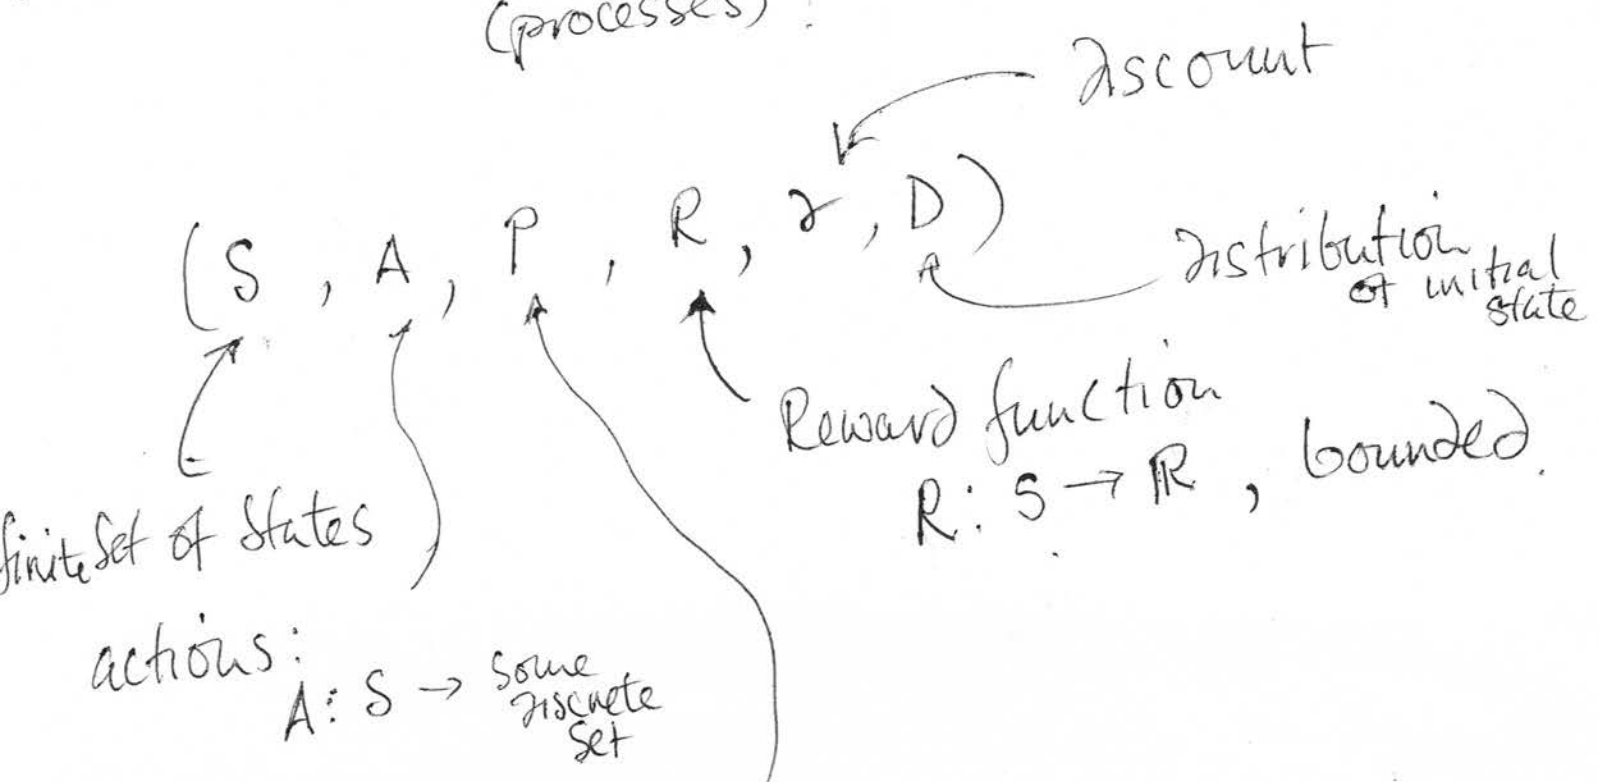 (processes) :
discount
(S , A , P , R , γ , D)
distribution
of initial
state
Reward function
R : S → ℝ , bounded.
finite set of states
actions :
A : S → some
discrete
set